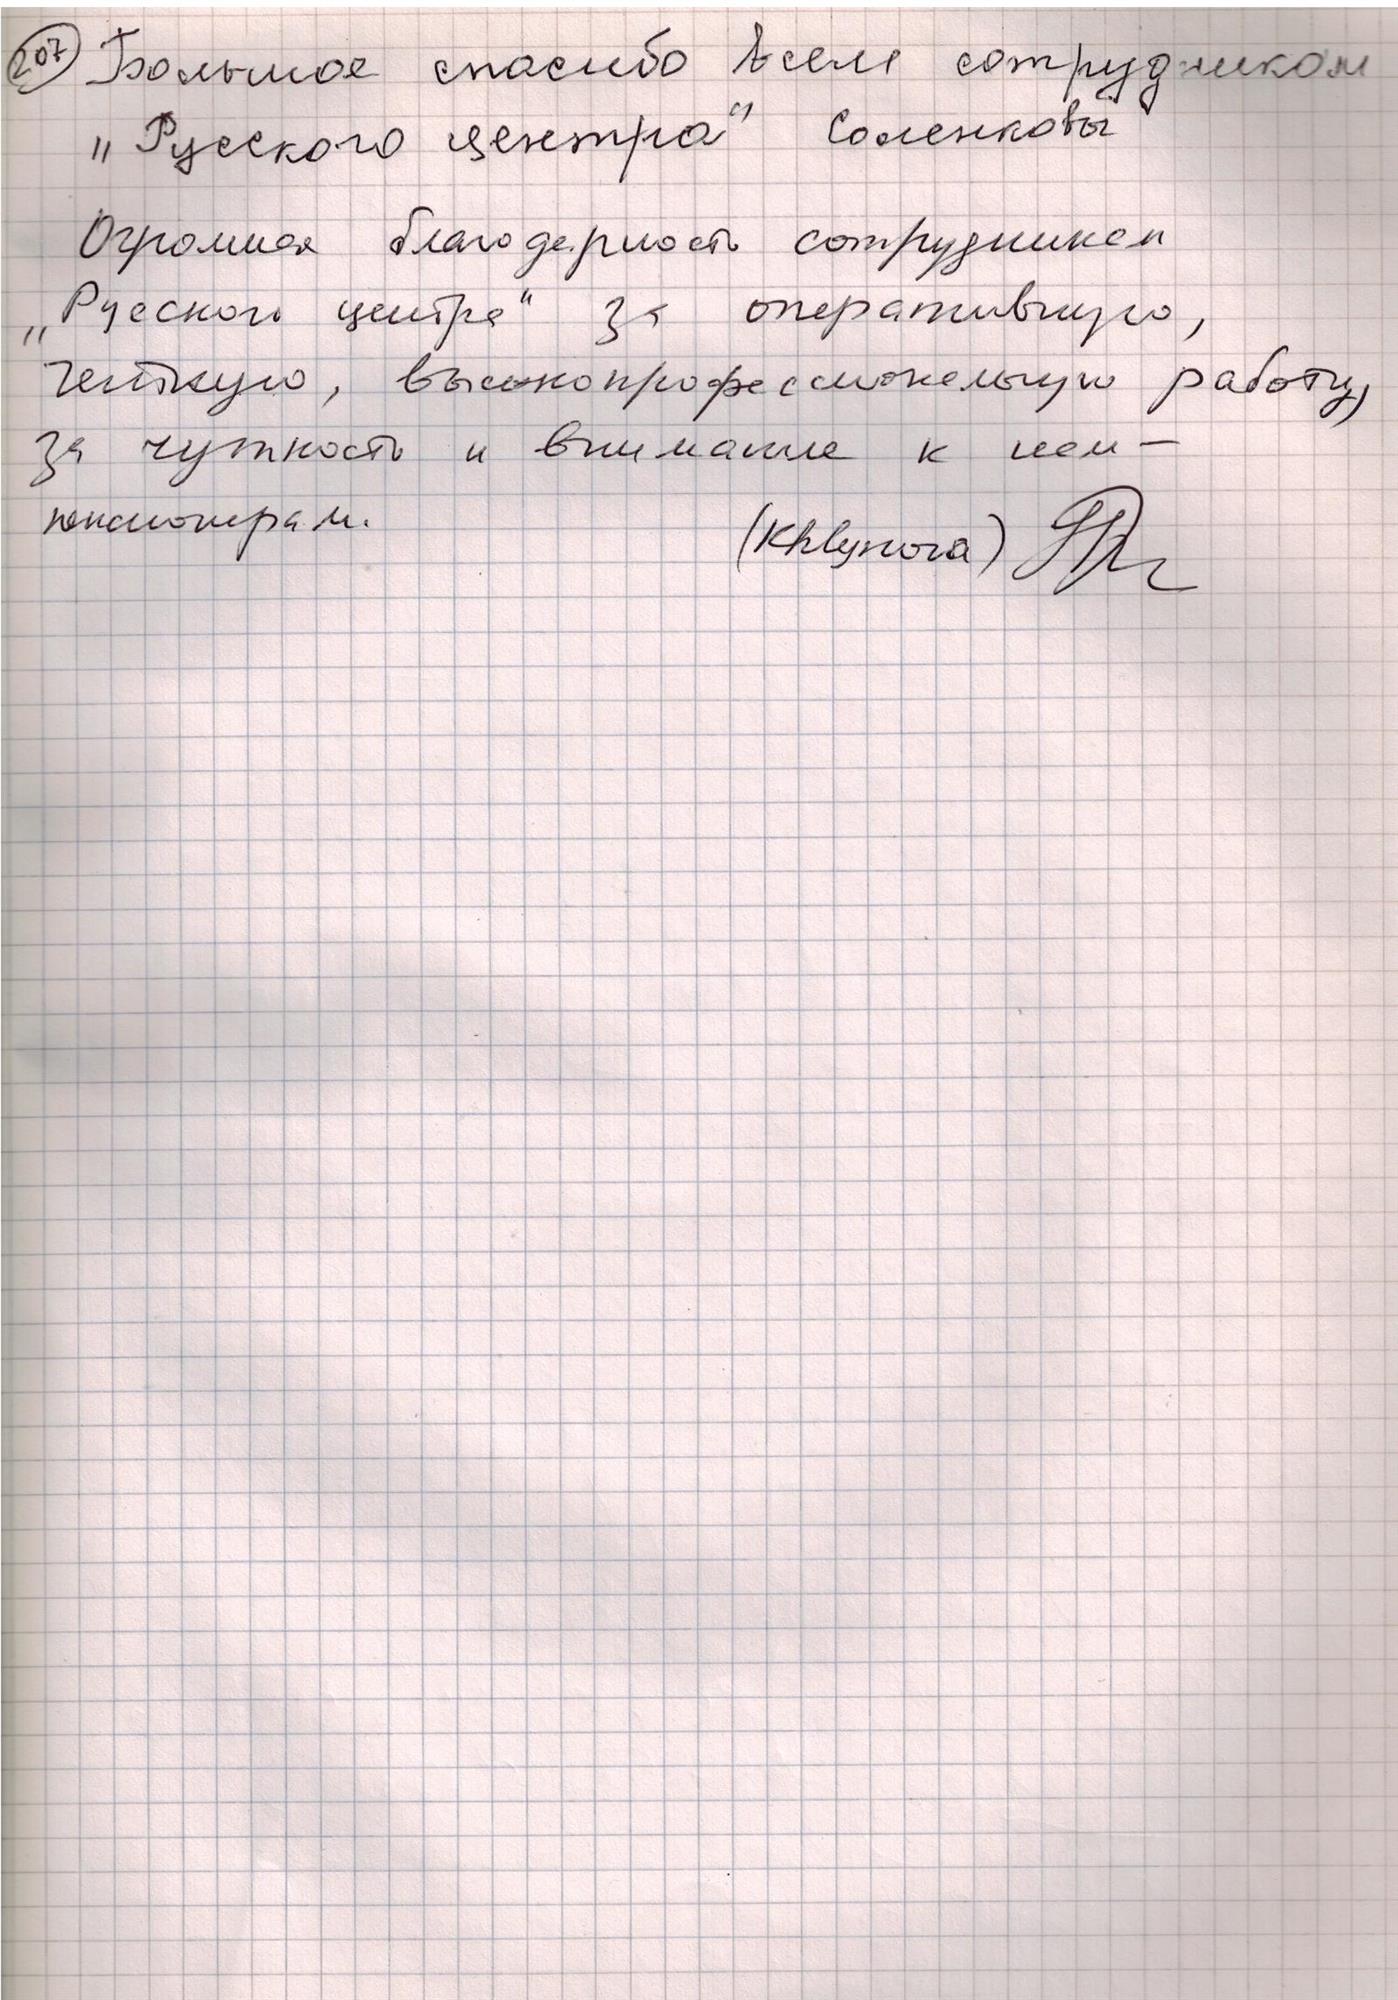 207 Большое спасибо всем сотрудникам
"Русского центра" Соленковы
Огромная благодарность сотрудникам
"Русского центра" за оперативную,
четкую, высокопрофессиональную работу,
за чуткость и внимание к нам -
пенсионерам.